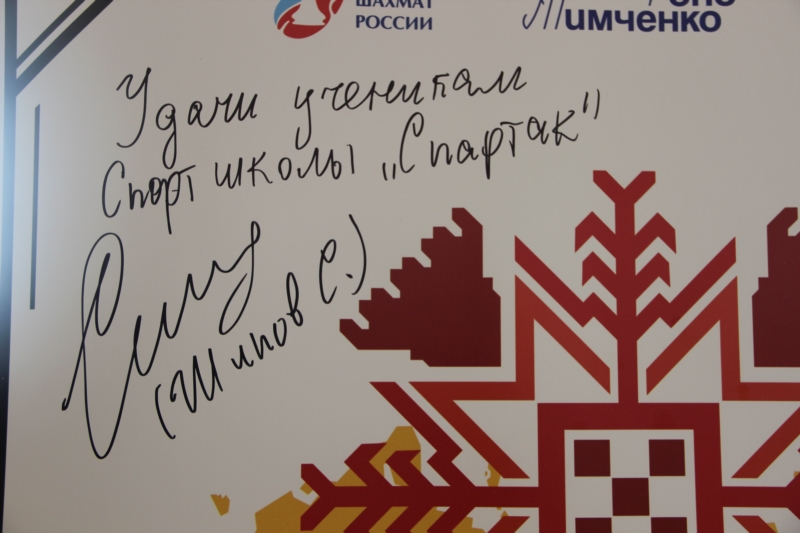 ШАХМАТ
РОССИИ
Тимченко
Удачи ученикам
Спорт школы „Спартак"
(Шипов С.)